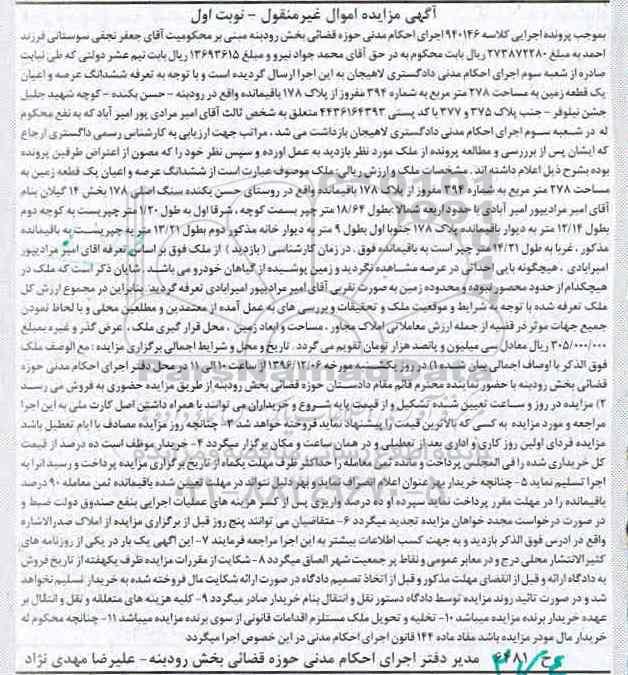 آگهی مزایده اموال غیرمنقول - نوبت اول
بموجب پرونده اجرایی کلاسه ۹۴۰۱۴۶ اجرای احکام مدنی حوزه قضائی بخش رودبنه مبنی بر محکومیت آقای جعفر نجفی سوستانی فرزند
احمد به مبلغ ۲۷۳۸۷۲۲۸۰ ریال بابت محکوم به در حق آقای محمد جواد نیرو و مبلغ ۱۳۶۹۳۶۱۵ ریال بابت نیم عشر دولتی که طی نیابت
صادره از شعبه سوم اجرای احکام مدنی دادگستری لاهیجان به این اجرا ارسال گردیده است و با توجه به تعرفه ششدانگ عرصه و اعیان
یک قطعه زمین به مساحت ۲۷۸ متر مربع به شماره ۳۹۴ مفروز از پلاک ۱۷۸ باقیمانده واقع در رودبنه - حسن بکنده - کوچه شهید جلیل
جشن نیلوفر - جنب پلاک ۳۷۵ و ۳۷۷ با کد پستی ۴۴۳۶۱۶۴۳۹۳ متعلق به شخص ثالث آقای امیر مرادی پور امیر آباد که به نفع محکوم
له در شعبه سوم اجرای احکام مدنی دادگستری لاهیجان بازداشت می شد، مراتب جهت ارزیابی به کارشناس رسمی داگستری ارجاع
که ایشان پس از برررسی و مطالعه پرونده از ملک مورد نظر بازدید به عمل اورده و سپس نظر خود را که مصون از اعتراض طرفین پرونده
بوده بشرح ذیل اعلام داشته اند. مشخصات ملک و ارزش ریالی ملک موصوف عبارت است از ششدانگ عرصه و اعیان یک قطعه زمین به
مساحت ۲۷۸ متر مربع به شماره ۳۹۴ مفروز از پلاک ۱۷۸ باقیمانده واقع در روستای حسن بکنده سنگ اصلی ۱۷۸ بخش ۱۴ گیلان بنام
آقای امیر مرادیپور امیر آبادی با حدود اربعه شمالا :بطول ۱۸/۶۴ متر چپر بسمت کوچه، شرقا اول به طول ۱/۲۰ متر چپربست به کوچه دوم
بطول ۱۲/۱۴ متر به دیوار باقیمانده پلاک ۱۷۸ جنوبا اول بطول ۹ متر به دیوار خانه مذکور دوم بطول ۱۳/۲۱ متر به چپربست به باقیمانده
مذکور، غربا به طول ۱۴/۲۱ متر چپر است به باقیمانده فوق. در زمان کارشناسی ( بازدید ) از ملک فوق بر اساس تعرفه اقای امیر مرادیپور
امیرابادی، هیچگونه بایی احداثی در عرصه مشاهده نگردید و زمین پوشیده از گیاهان خودرو می باشید. شایان ذکر است که ملک در
هیچکدام از حدود محصور نبوده و محدوده زمین به صورت تقربی آقای امیر مرادیپور امیرابادی تعرفه گردید. بنابراین در مجموع ارزش کل
ملک تعرفه شده با توجه به شرایط و موقعیت ملک و تحقیقات و بررسی های به عمل آمده از معتمدین و مطلعین محلی و با لحاظ نمودن
جمیع جهات موثر در قضیه از جمله ارزش معاملاتی املاک مجاور، مساحت و ابعاد زمین، محل قرار گیری ملک، عرض گذر و غیره بمبلغ
۳۰۵/۰۰۰/۰۰۰ ریال معادل سی میلیون و پانصد هزار تومان تقویم می گردد. تاریخ و محل و شرایط اجمالی برگزاری مزایده : مع الوصف ملک
فوق الذکر با اوصاف اجمالی بیان شده ۱) در روز یکشنبه مورخه ۱۳۹۶/۱۲/۰۶ از ساعت ۱۰ الی ۱۱ در محل دفتر اجرای احکام مدنی حوزه
قضائی بخش رودبنه با حضور نماینده محترم قائم مقام دادستان حوزه قضائی بخش رودبنه از طریق مزایده حضوری به فروش می رسید
۲) مزایده در روز و ساعت تعیین شده تشکیل و از قیمت پایه شروع و خریداران می توانند با همراه داشتن اصل کارت ملی به این اجرا
مراجعه و مورد مزایده به کسی که بالاترین قیمت را پیشنهاد نماید فروخته خواهد شد ۳- چنانچه روز مزایده مصادف با ایام تعطیل باشد
مزایده فردای اولین روز کاری و اداری بعد از تعطیلی و در همان ساعت و مکان برگزار میگردد ۴- خریدار موظف است ده درصد از قیمت
کل خریداری شده را فی المجلس پرداخت و مانده ثمن معامله را حداکثر ظرف مهلت یکماه از تاریخ برگزاری مزایده پرداخت و رسید انرا به
اجرا تسلیم نماید ۵ - چنانچه خریدار بهر عنوان اعلام انصراف نماید و بهر دلیل نتواند در مهلت تعیین شده باقیمانده ثمن معامله ۹۰ درصد
باقیمانده را در مهلت مقرر پرداخت نماید سپرده او ده درصد واریزی پس از کسر هزینه های عملیات اجرایی بنفع صندوق دولت ضبط و
در صورت درخواست مجدد خواهان مزایده تجدید میگردد ۶- متقاضیان می توانند پنج روز قبل از برگزاری مزایده از املاک صدرالاشاره
واقع در ادرس فوق الذکر بازدید و به جهت کسب اطلاعات بیشتر به این اجرا مراجعه فرمایند ۷- این اگهی یک بار در یکی از روزنامه های
کثیرالانتشار محلی درج و در معابر عمومی و نقاط پر جمعیت شهر الصاق میگردد ۸- شکایت از مقررات مزایده ظرف یکهفته از تاریخ فروش
به دادگاه ارائه و قبل از انقضای مهلت مذکور و قبل از اتخاذ تصمیم دادگاه در صورت ارائه شکایت مال فروخته شده به خریدار تسلیم نخواهد
شد و در صورت تائید روند مزایده توسط دادگاه دستور نقل و انتقال بنام خریدار صادر میگردد ۹- کلیه هزینه های متعلقه و نقل و انتقال بر
عهده خریدار برنده مزایده میباشد ۱۰- تخلیه و تحویل ملک مستلزم اقدامات قانونی از سوی برنده مزایده میباشد ۱۱- چنانچه محکوم له
خریدار مال مودر مزایده باشد مفاد ماده ۱۴۴ قانون اجرای احکام مدنی در این خصوص اجرا میگردد
مدیر دفتر اجرای احکام مدنی حوزه قضائی بخش رودبنه- علیرضا مهدی نژاد